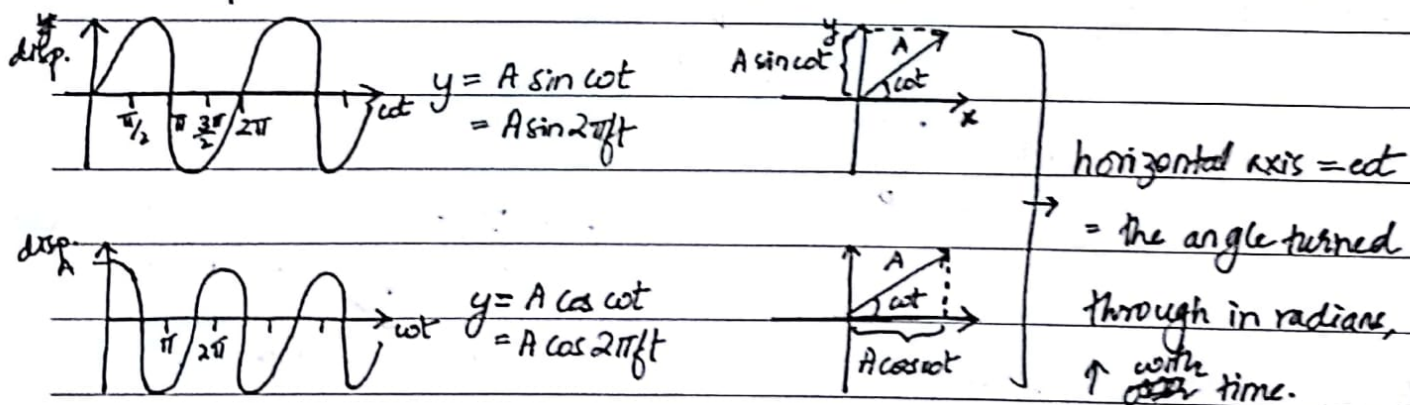 y
disp.
π/2 π 3π/2 2π ωt
y = A sin ωt
= A sin 2πft
y
A sin ωt
A
ωt
x
disp.
A
π 2π ωt
y = A cos ωt
= A cos 2πft
A
ωt
A cos ωt
→ horizontal axis = ωt
= the angle turned
through in radians,
↑ with time.